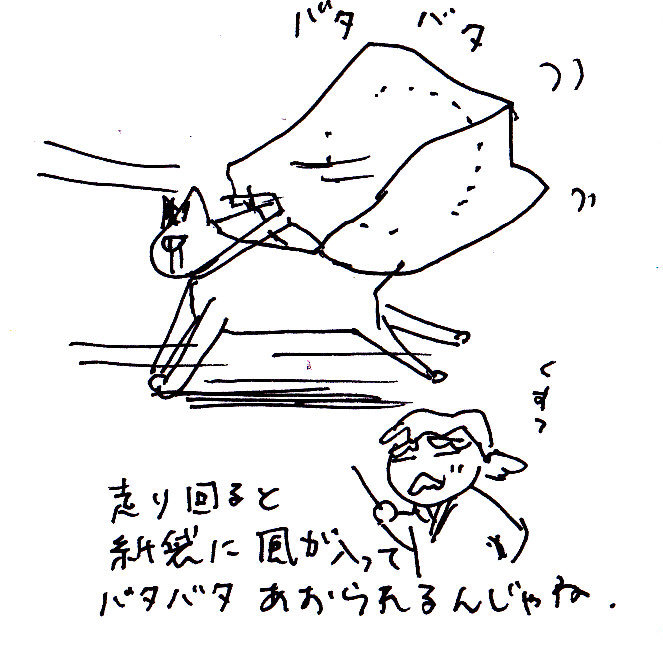 バタ バタ
くすっ
走り回ると
紙袋に風が入って
バタバタ あおられるんじゃね.